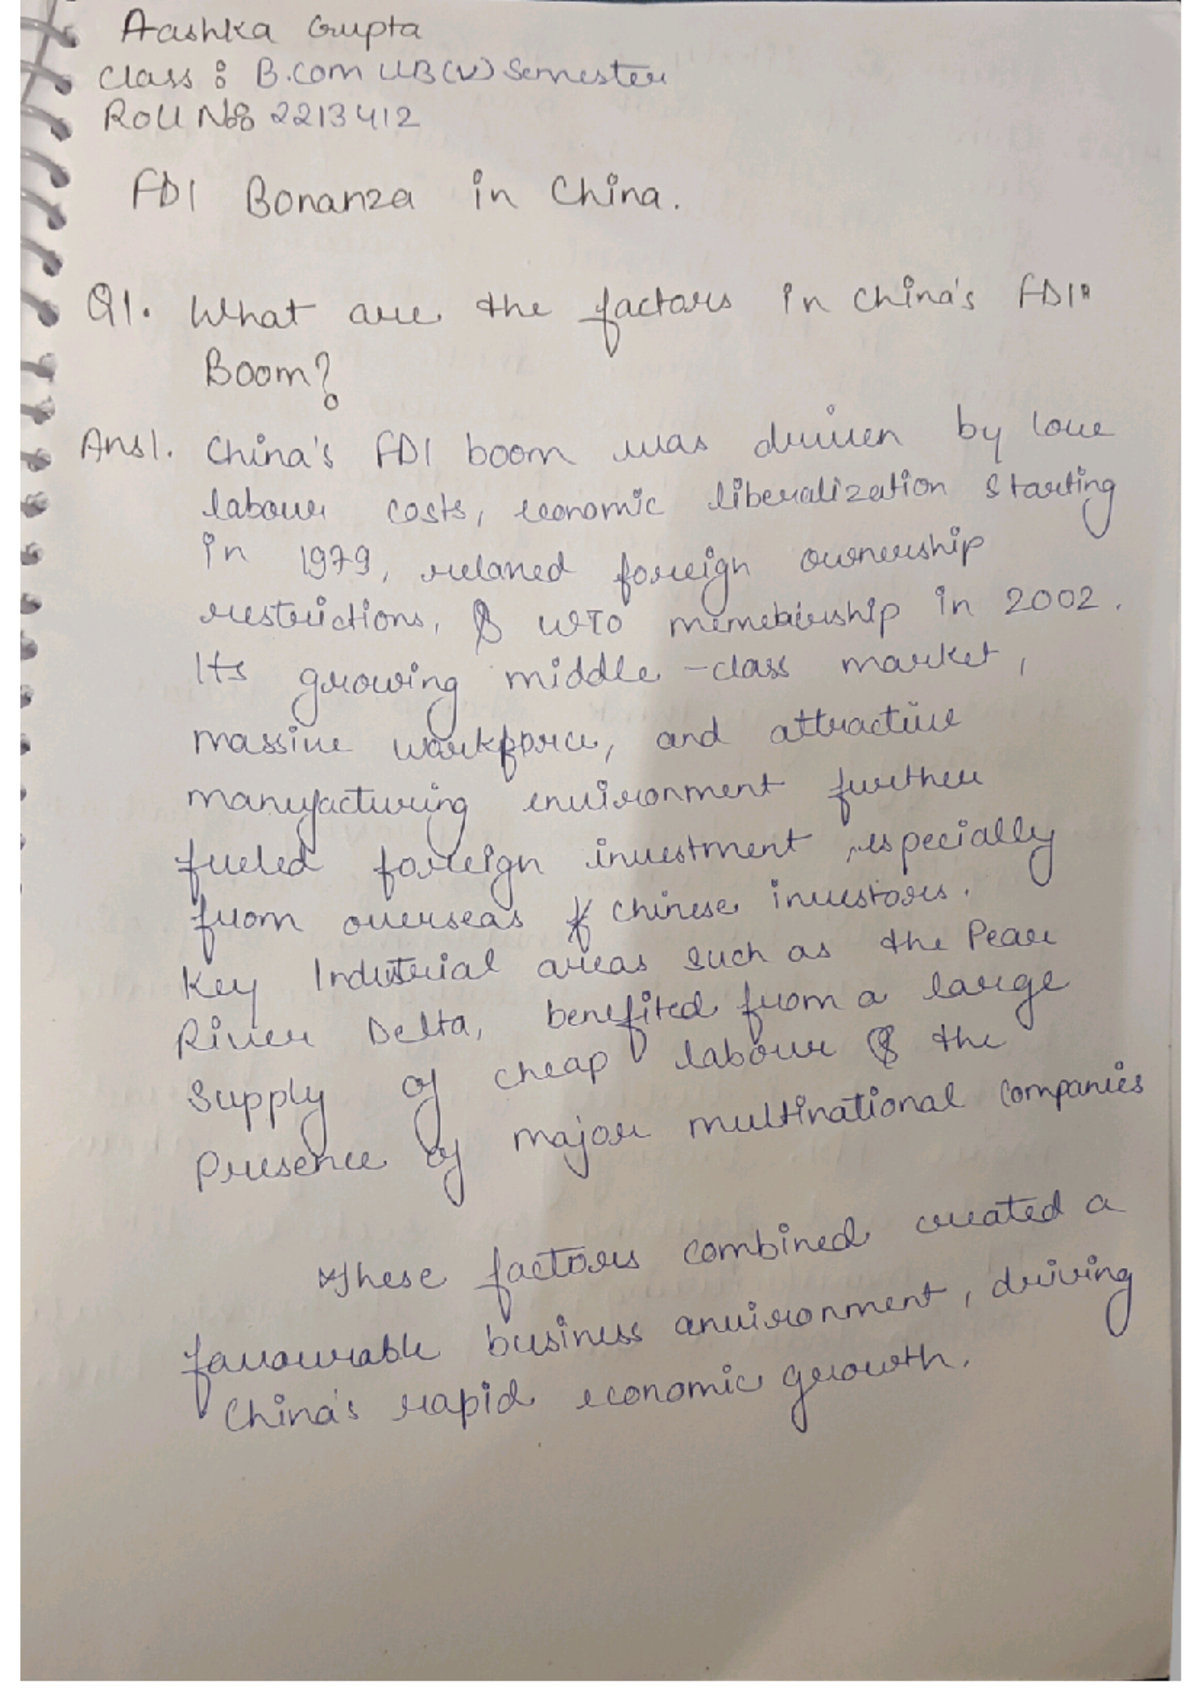 Aashka Gupta
Class : B.com UB(V) Semester
Roll No: 2213412
FDI Bonanza in China.
Q1. What are the factors in China's FDI
Boom?
Ans1. China's FDI boom was driven by low
labour costs, economic liberalization starting
in 1979, relaxed foreign ownership
restrictions, & WTO memebership in 2002.
Its growing middle-class market,
massive workforce, and attractive
manufacturing environment further
fueled foreign investment, especially
from overseas Chinese investors.
Key Industrial areas such as the Pear
River Delta, benefited from a large
Supply of cheap labour & the
Presence of major multinational companies
These factors combined created a
favourable business anvironment, driving
China's rapid economic growth.